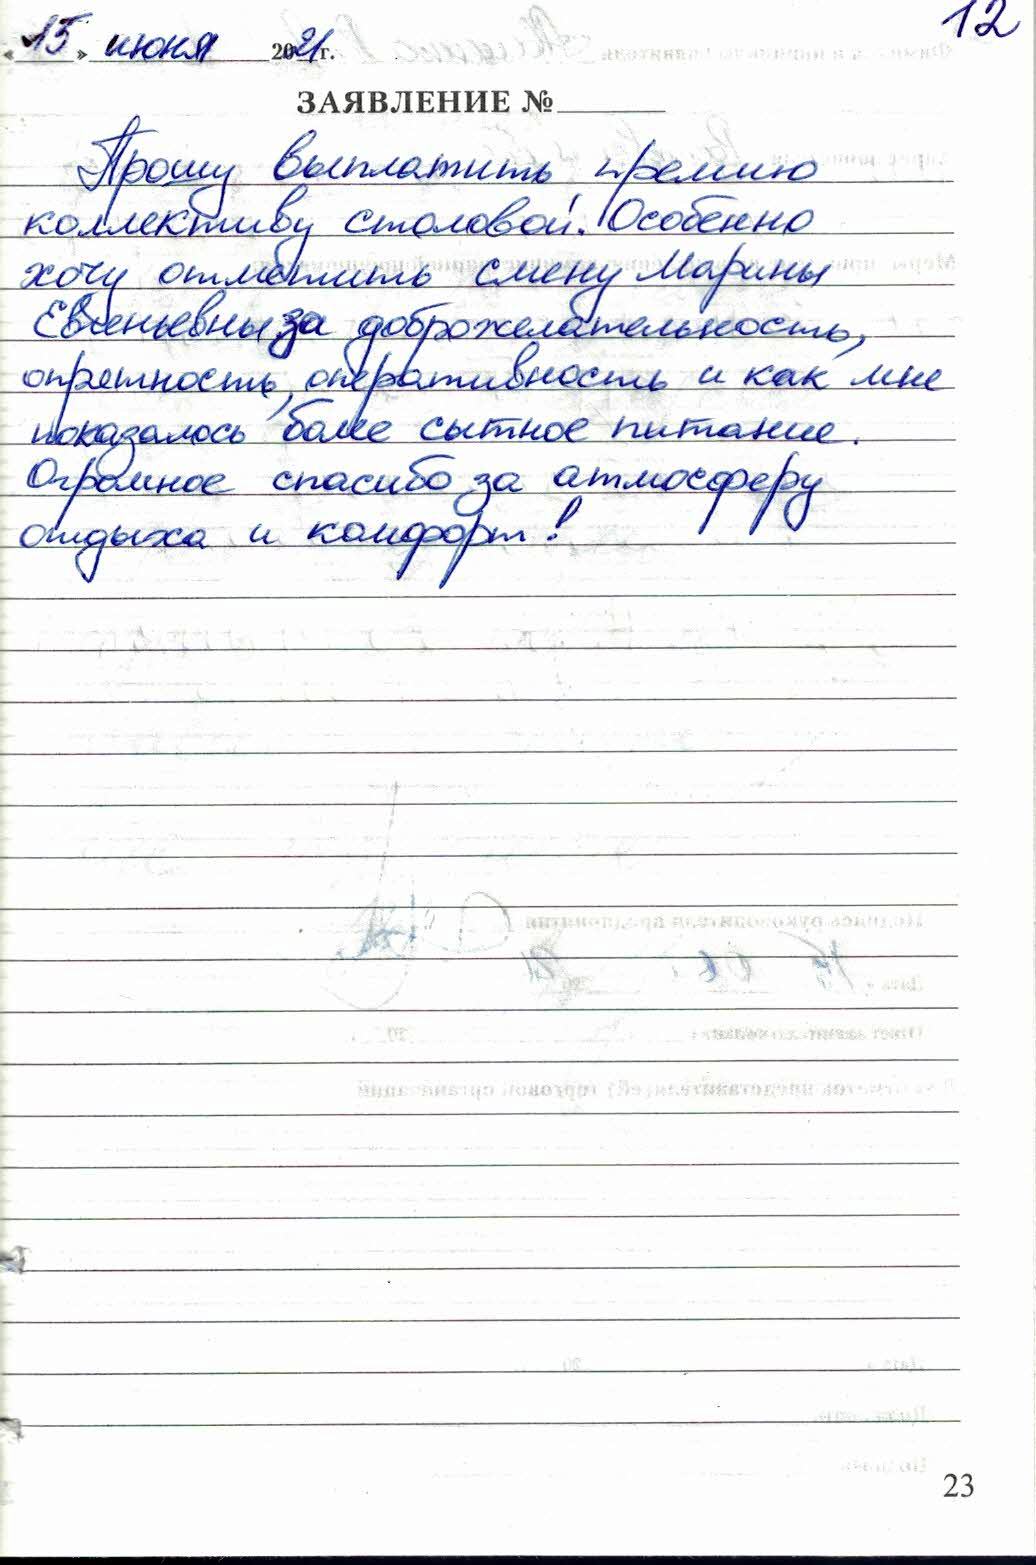 12
« 15 » июня 2021 г.
ЗАЯВЛЕНИЕ №
Прошу выплатить премию
коллективу столовой. Особенно
хочу отметить смену Марины
Евгеньевны за доброжелательность,
опрятность, оперативность и как мне
показалось более сытное питание.
Огромное спасибо за атмосферу
отдыха и комфорт!
23